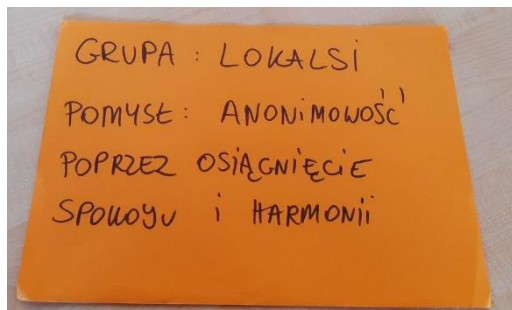 GRUPA : LOKALSI
POMYSŁ: ANONIMOWOŚĆ
POPRZEZ OSIĄGNIĘCIE
SPOKOJU i HARMONII